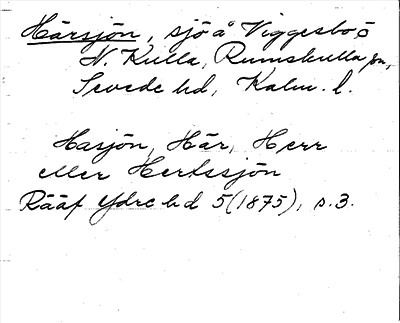 Härsjön, sjö å Viggesbo o
N. Kulla, Rumskulla sn,
Sevede hd, Kalm. l.
Hasjön, Här, Herr
eller Hertssjön
Rääf Ydre hd 5 (1875), s. 3.